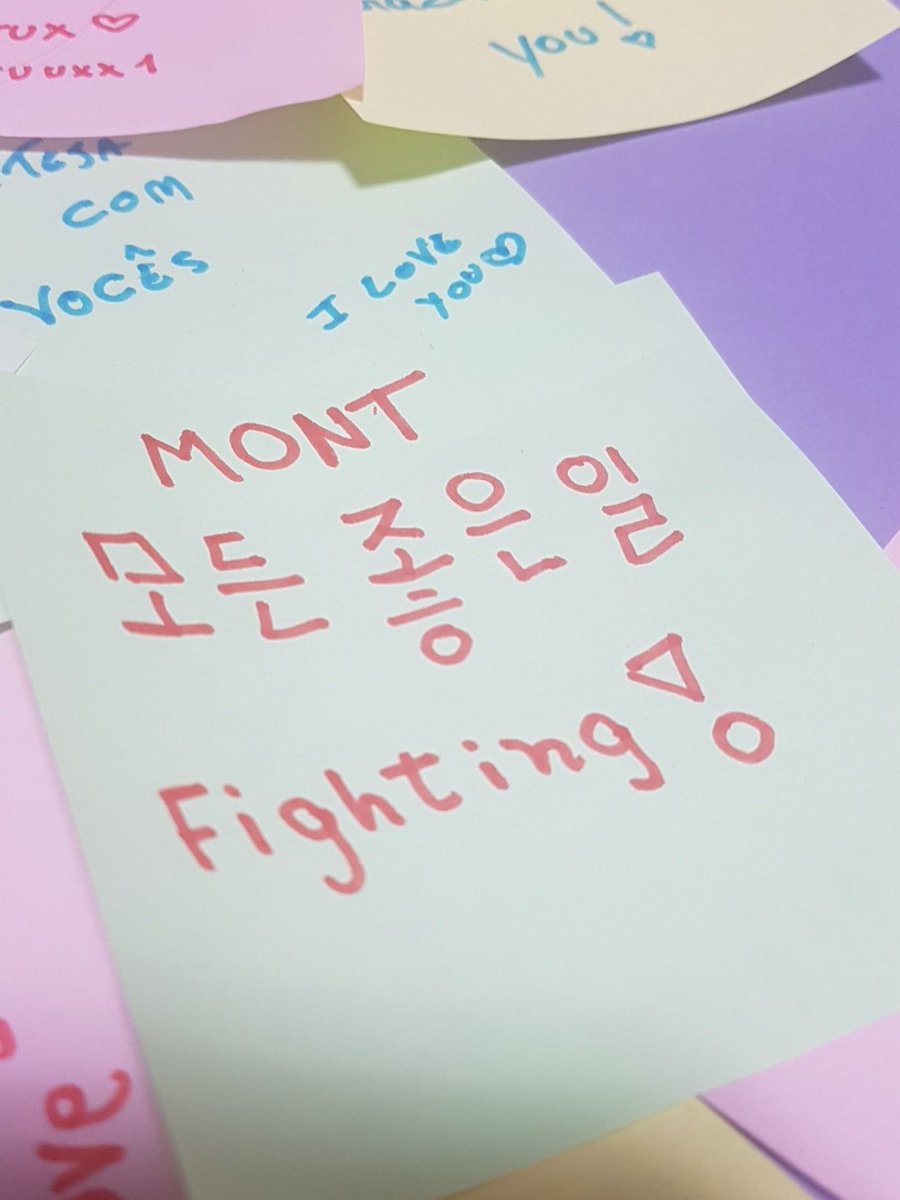 YOU!
TEJA
COM
VOCÊS
I LOVE
YOU♡
MONT
모든 좋은 일
Fighting!